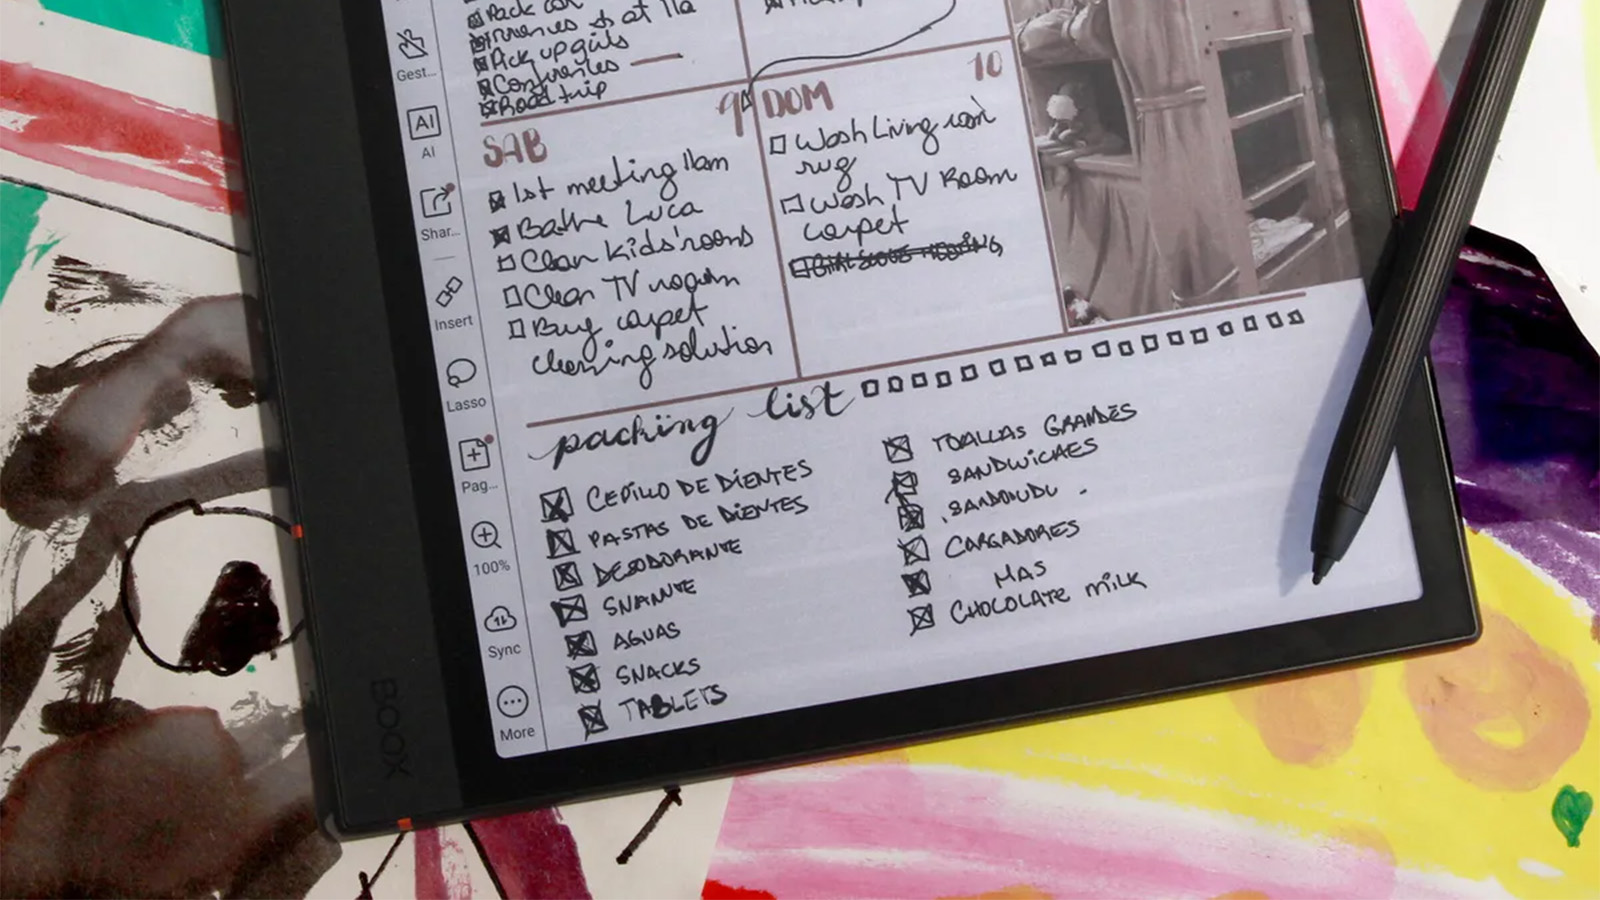 Pack car
at 11a
Pick up girls
Road trip
SAB 9
1st meeting 11am
Bathe Luca
Clean kids' rooms
Clean TV room
Buy carpet
cleaning solution
DOM 10
Wash Living room
rug
Wash TV Room
carpet
packing list
CEPILLO DE DIENTES
PASTAS DE DIENTES
DESODORANTE
AGUAS
SNACKS
TABLETS
TOALLAS GRANDES
SANDWICHES
CARGADORES
MAS
CHOCOLATE milk
Gest...
AI
AI
Shar...
Insert
Lasso
Pag...
100%
Sync
More
BOOX